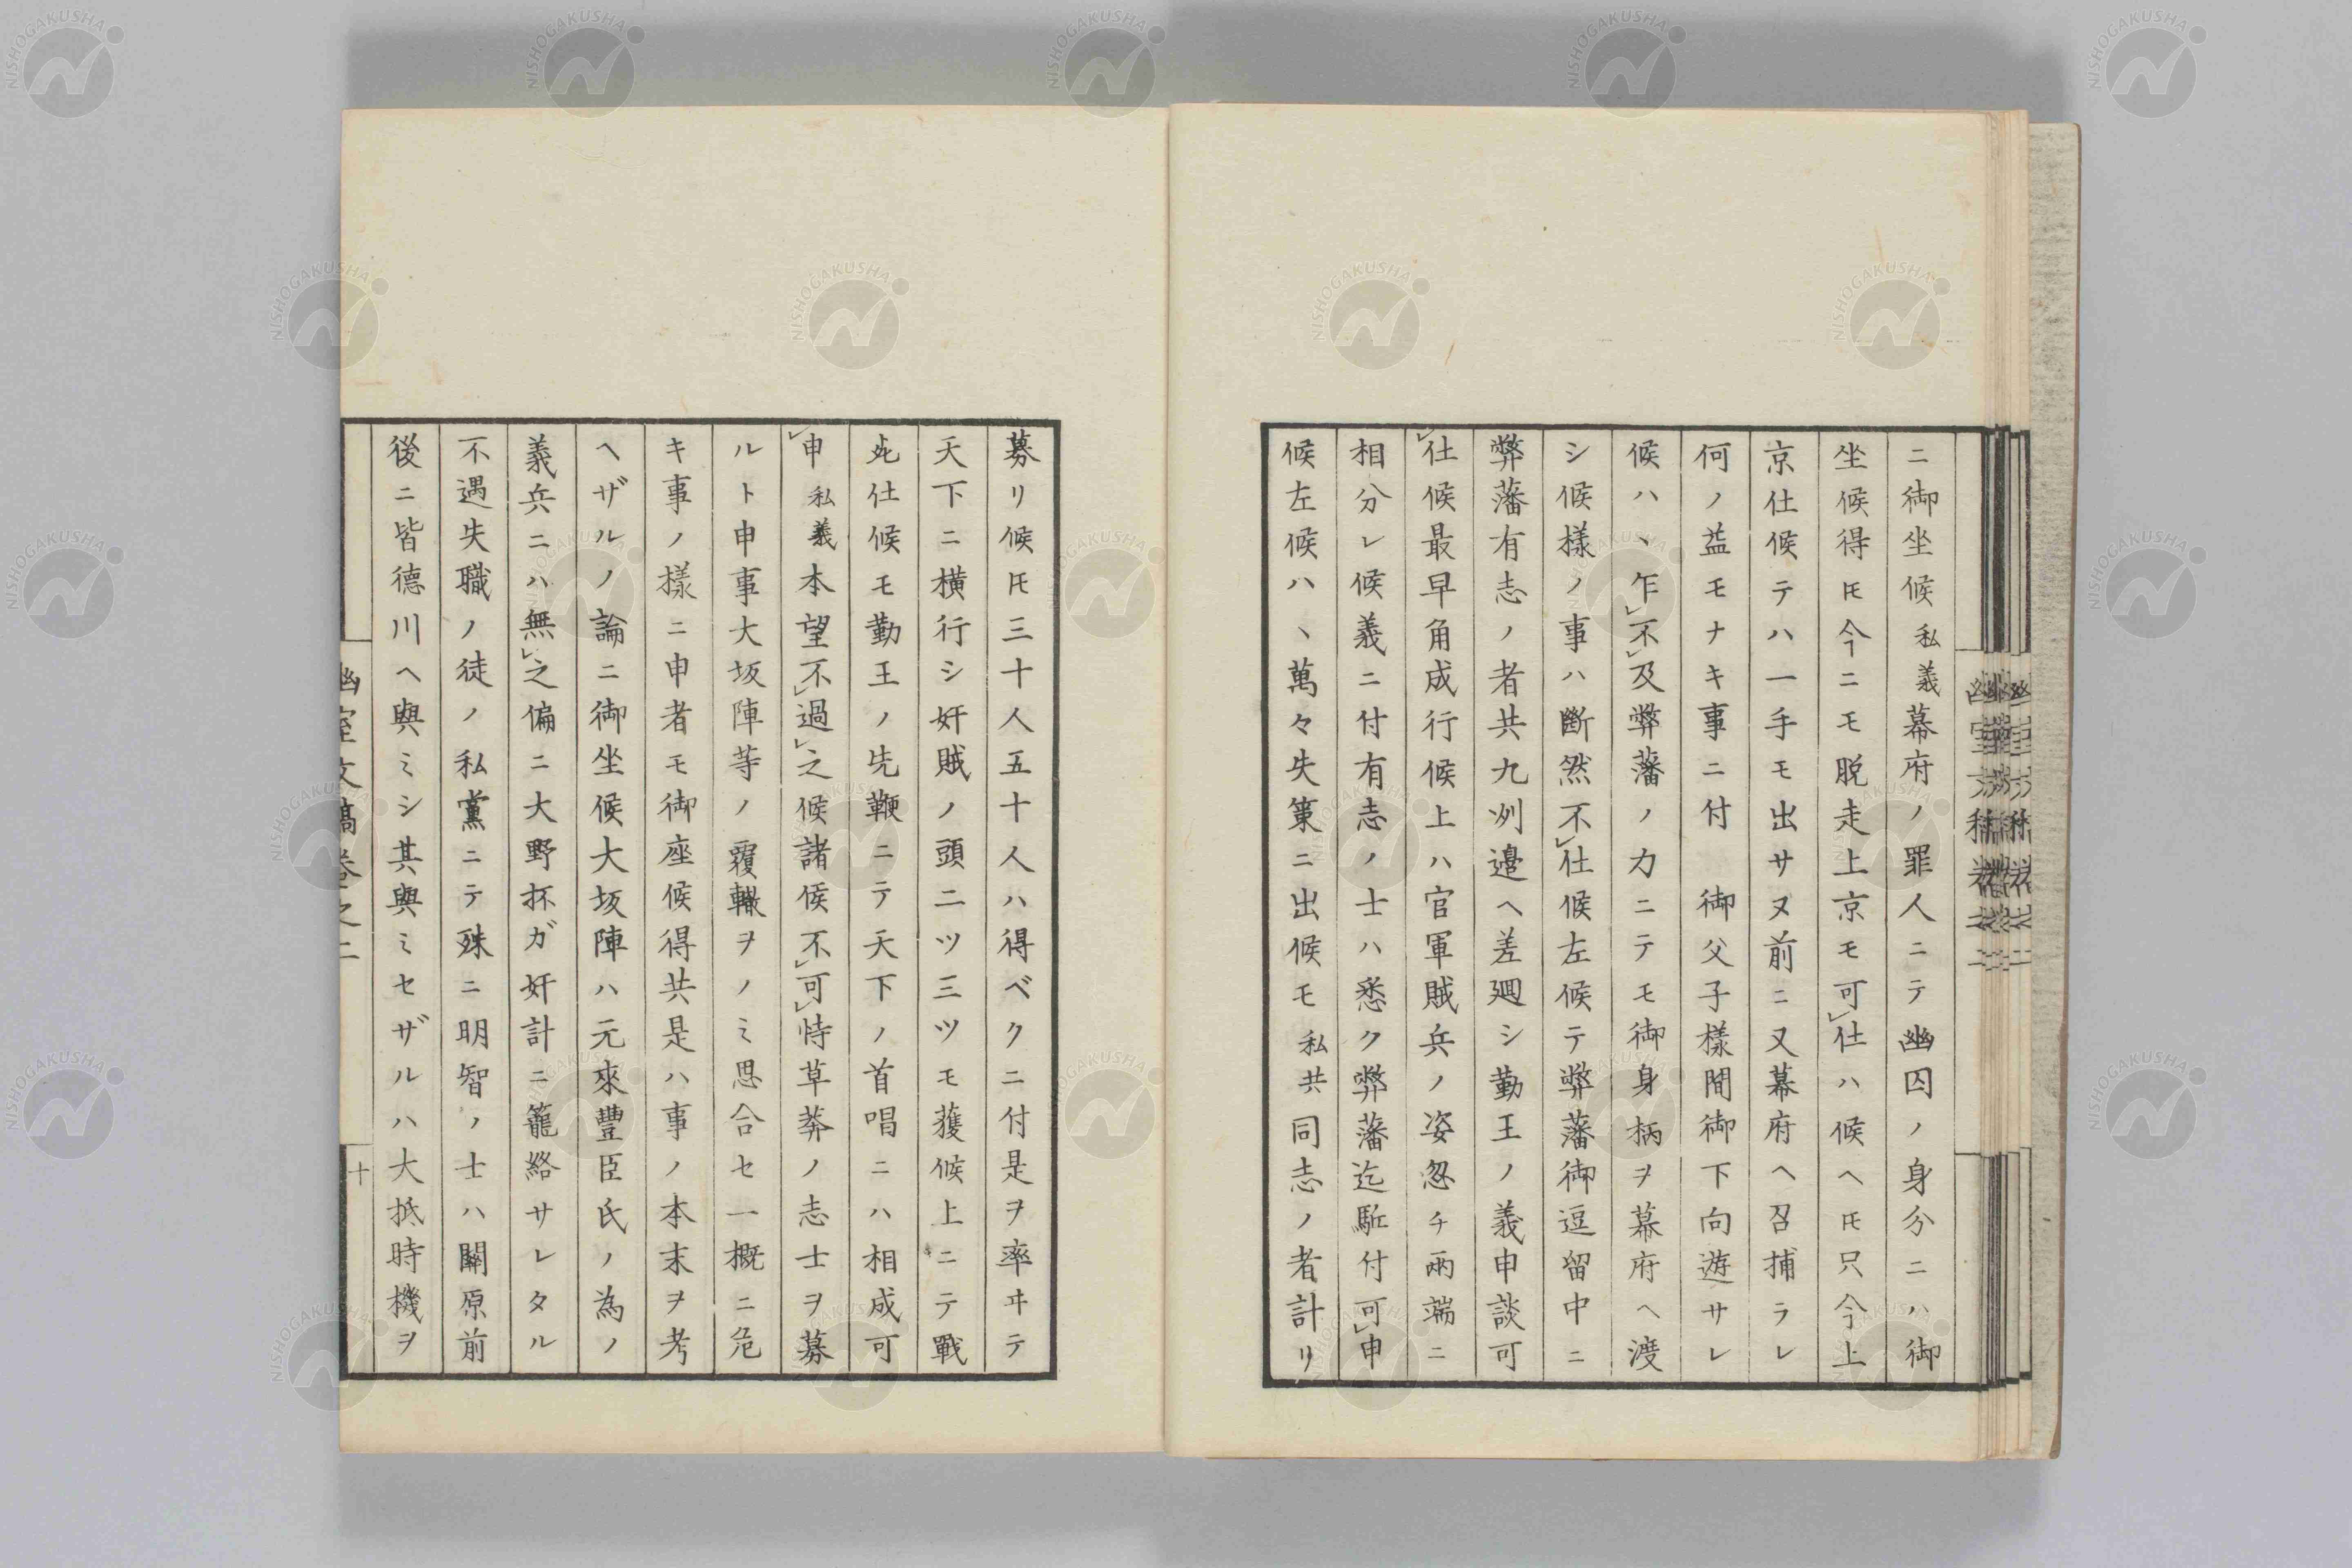 ニ御坐候私義幕府ノ罪人ニテ幽囚ノ身分ニハ御
坐候得𪜈今ニモ脱走上京モ可㆑仕ハ候ヘ𪜈只今上
京仕候テハ一手モ出サヌ前ニ又幕府ヘ召捕ラレ
何ノ益モナキ事ニ付 御父子様間御下向遊サレ
候ハヽ乍㆑不㆑及弊藩ノ力ニテモ御身柄ヲ幕府ヘ渡
シ候樣ノ事ハ斷然不㆑仕候左候テ弊藩御逗留中ニ
弊藩有志ノ者共九州邉ヘ差廻シ勤王ノ義申談可
㆑仕候最早角成行候上ハ官軍賊兵ノ姿忽チ兩端ニ
相分レ候義ニ付有志ノ士ハ悉ク弊藩迄駈付可㆑申
候左候ハヽ萬々失策ニ出候モ私共同志ノ者計リ
募リ候𪜈三十人五十人ハ得ベクニ付是ヲ率ヰテ
天下ニ横行シ奸賊ノ頭二ツ三ツモ獲候上ニテ戰
死仕候モ勤王ノ先鞭ニテ天下ノ首唱ニハ相成可
㆑申私義本望不㆑過㆑之候諸侯不㆑可㆑恃草莽ノ志士ヲ募
ルト申事大坂陣等ノ覆轍ヲノミ思合セ一概ニ危
キ事ノ樣ニ申者モ御座候得共是ハ事ノ本末ヲ考
ヘザルノ論ニ御坐候大坂陣ハ元來豐臣氏ノ為ノ
義兵ニハ無㆑之偏ニ大野抔ガ奸計ニ籠絡サレタル
不遇失職ノ徒ノ私黨ニテ殊ニ明智ノ士ハ關原前
後ニ皆德川ヘ與ミシ其與ミセザルハ大抵時機ヲ
幽室文稿卷之二
十